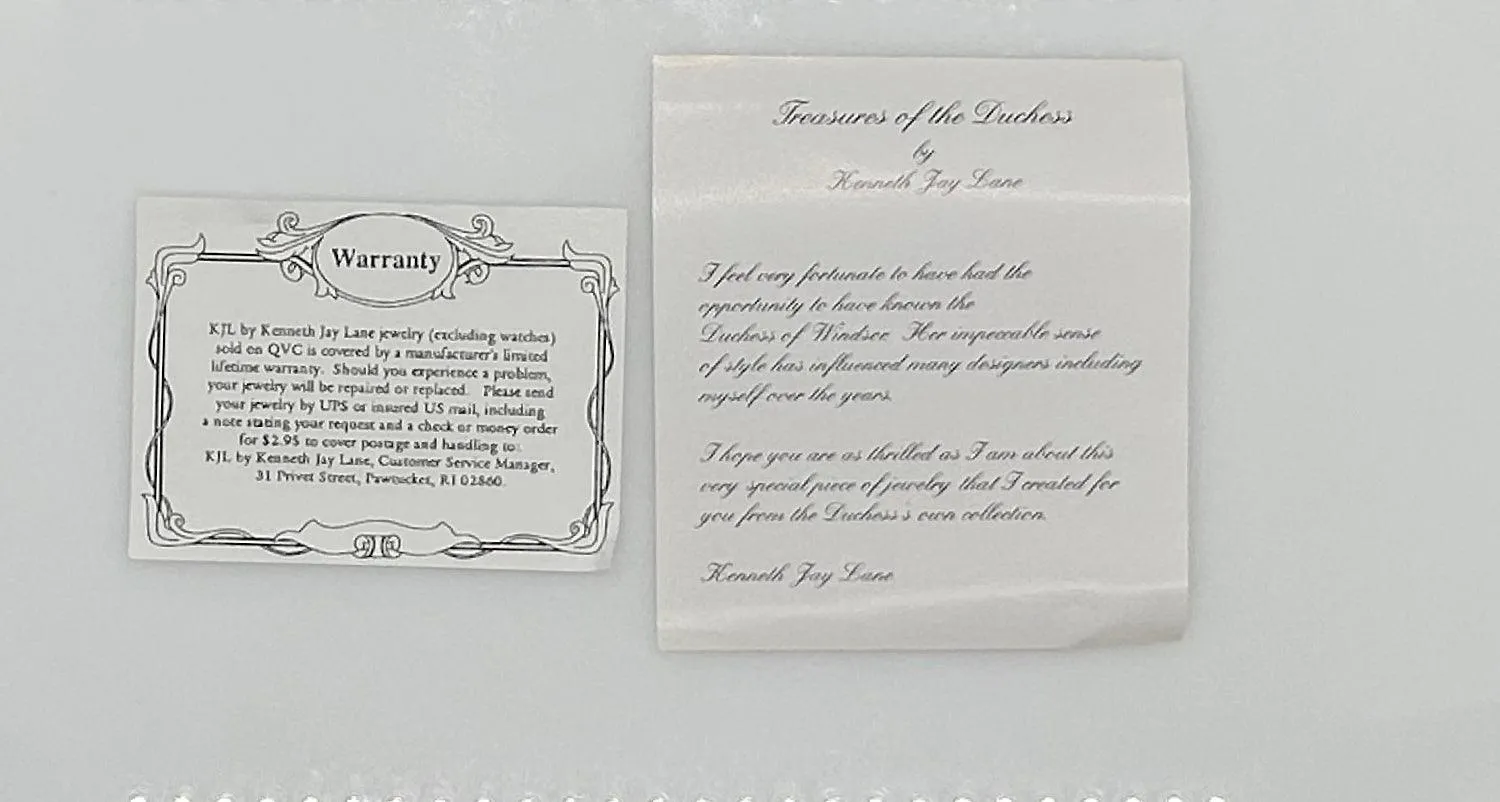 Warranty
KJL by Kenneth Jay Lane jewelry (excluding watches)
sold on QVC is covered by a manufacturer's limited
lifetime warranty. Should you experience a problem,
your jewelry will be repaired or replaced. Please send
your jewelry by UPS or insured US mail, including
a note stating your request and a check or money order
for $2.95 to cover postage and handling to:
KJL by Kenneth Jay Lane, Customer Service Manager,
31 Privet Street, Pawtucket, RI 02860.
Treasures of the Duchess
by
Kenneth Jay Lane
I feel very fortunate to have had the
opportunity to have known the
Duchess of Windsor. Her impeccable sense
of style has influenced many designers including
myself over the years.
I hope you are as thrilled as I am about this
very special piece of jewelry that I created for
you from the Duchess's own collection.
Kenneth Jay Lane